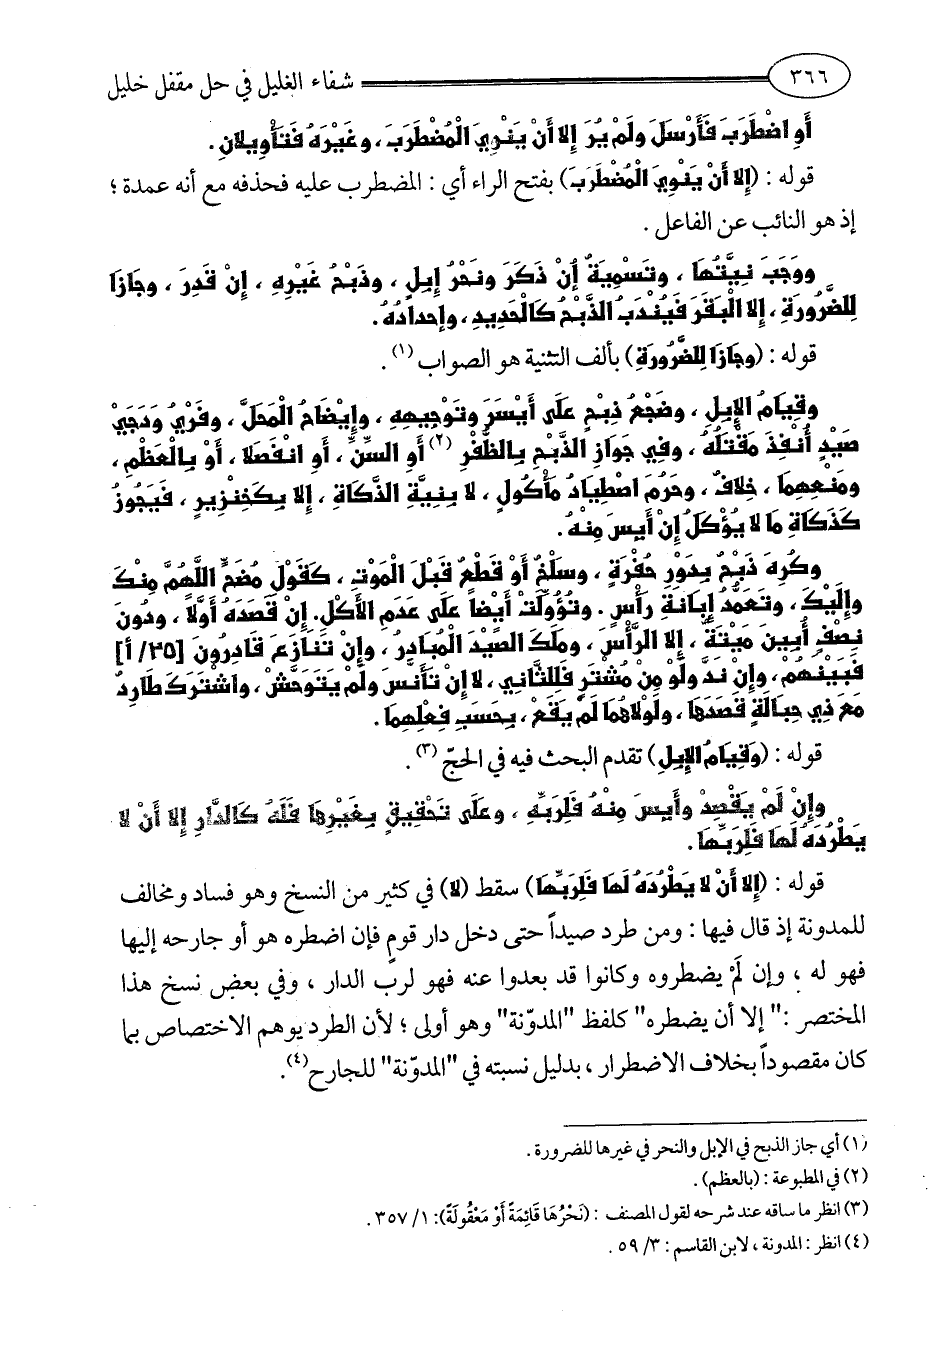 ٣٦٦ شفاء الغليل في حل مقفل خليل
أَوِ اضْطَرَبَ فَأَرْسَلَ ولَمْ يُرَ إِلا أَنْ يَنْوِيَ الْمُضْطَرَبَ، وغَيْرَهُ فَتَأْوِيلانِ.
قوله : (إِلا أَنْ يَنْوِيَ الْمُضْطَرَبَ) بفتح الراء أي : المضطرب عليه فحذفه مع أنه عمدة ؛
إذ هو النائب عن الفاعل .
ووَجَبَ نِيَّتُهَا ، وتَسْمِيَةٌ إِنْ ذَكَرَ ونَحْرُ إِبِلٍ ، وذَبْحُ غَيْرِهِ ، إِنْ قَدَرَ ، وجَازَا
لِلضَّرُورَةِ ، إِلا الْبَقَرَ فَيُنْدَبُ الذَّبْحُ كَالْحَدِيدِ ، وإِحْدَادُهُ.
قوله : (وجَازَا لِلضَّرُورَةِ) بألف التثنية هو الصواب (١) .
وقِيَامُ الإِبِلِ ، وضَجْعُ ذِبْحٍ عَلَى أَيْسَرَ وتَوْجِيهِهِ ، وإِيضَاحُ الْمَحَلِّ ، وفَرْيُ وَدَجَيْ
صَيْدٍ أُنْفِذَ مَقْتَلُهُ ، وفِي جَوَازِ الذَّبْحِ بِالظُّفْرِ (٢) أَوِ السِّنِّ ، أَوِ انْفَصَلا ، أَوْ بِالْعَظْمِ ،
ومَنْعِهِمَا ، خِلافٌ ، وحَرُمَ اصْطِيَادُ مَأْكُولٍ ، لا بِنِيَّةِ الذَّكَاةِ ، إِلا بِكَخِنْزِيرٍ ، فَيَجُوزُ
كَذَكَاةِ مَا لا يُؤْكَلُ إِنْ أَيِسَ مِنْهُ.
وكُرِهَ ذَبْحٌ بِدَوْرِ حُفْرَةٍ ، وسَلْخٌ أَوْ قَطْعٌ قَبْلَ الْمَوْتِ ، كَقَوْلِ مُضَحٍّ اللَّهُمَّ مِنْكَ
وإِلَيْكَ ، وتَعَمُّدُ إِبَانَةِ رَأْسٍ . وتُؤُوِّلَتْ أَيْضاً عَلَى عَدَمِ الأَكْلِ. إِنْ قَصَدَهُ أَوَّلا ، ودُونَ
نِصْفٍ أُبِينَ مَيْتَةٌ ، إِلا الرَّأْسَ ، ومَلَكَ الصَّيْدَ الْمُبَادِرُ ، وإِنْ تَنَازَعَ قَادِرُونَ [٣٥/ أ]
فَبَيْنَهُمْ ، وإِنْ نَدَّ ولَوْ مِنْ مُشْتَرٍ فَلِلثَّانِي ، لا إِنْ تَأَنَّسَ ولَمْ يَتَوَحَّشْ ، واشْتَرَكَ طَارِدٌ
مَعَ ذِي حِبَالَةٍ قَصَدَهَا ، ولَوْلاهُمَا لَمْ يَقَعْ ، بِحَسَبِ فِعْلِهِمَا .
قوله : (وَقِيَامُ الإِبِلِ) تقدم البحث فيه في الحجّ (٣) .
وإِنْ لَمْ يَقْصِدْ وأَيِسَ مِنْهُ فَلِرَبِّهِ ، وعَلَى تَحْقِيقٍ بِغَيْرِهَا فَلَهُ كَالدَّارِ إِلا أَنْ لا
يَطْرُدَهُ لَهَا فَلِرَبِّهَا .
قوله : (إِلا أَنْ لا يَطْرُدَهُ لَهَا فَلِرَبِّهَا) سقط (لا) في كثير من النسخ وهو فساد ومخالف
للمدونة إذ قال فيها : ومن طرد صيداً حتى دخل دار قومٍ فإن اضطره هو أو جارحه إليها
فهو له ، وإن لَمْ يضطروه وكانوا قد بعدوا عنه فهو لرب الدار ، وفي بعض نسخ هذا
المختصر :" إلا أن يضطره" كلفظ "المدوّنة" وهو أولى ؛ لأن الطرد يوهم الاختصاص بما
كان مقصوداً بخلاف الاضطرار ، بدليل نسبته في "المدوّنة" للجارح(٤).
(١) أي جاز الذبح في الإبل والنحر في غيرها للضرورة .
(٢) في المطبوعة : (بالعظم) .
(٣) انظر ما ساقه عند شرحه لقول المصنف : (نَحْرُهَا قَائِمَةً أَوْ مَعْقُولَةً): ١/ ٣٥٧ .
(٤) انظر : المدونة ، لابن القاسم : ٣/ ٥٩ .